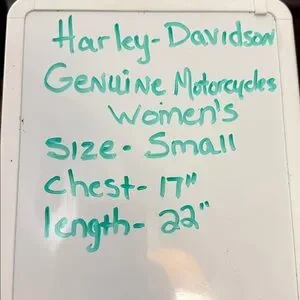 Harley-Davidson
Genuine Motorcycles
Women's
Size- Small
Chest- 17"
length- 22"